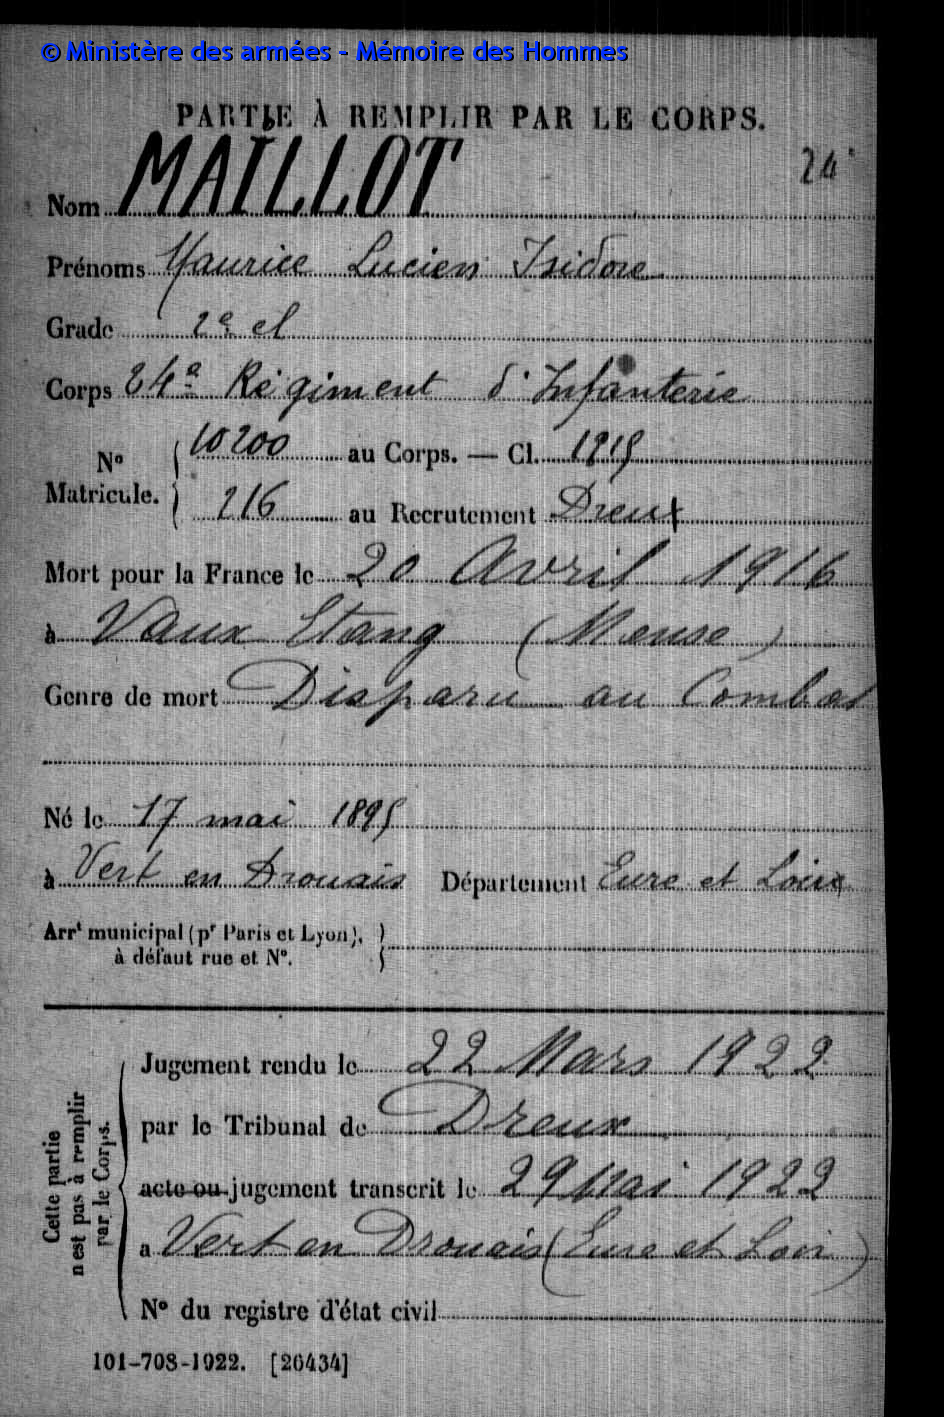 © Ministère des armées - Mémoire des Hommes
PARTIE À REMPLIR PAR LE CORPS.
24e
Nom MAILLOT
Prénoms Maurice Lucien Isidore
Grade 2e cl
Corps 24e Régiment d'Infanterie
No Matricule. { 10200 au Corps. — Cl. 1915
216 au Recrutement Dreux
Mort pour la France le 20 Avril 1916
à Vaux Etang (Meuse)
Genre de mort Disparu au Combat
Né le 17 mai 1895
à Vert en Drouais Département Eure et Loire
Arrt municipal (pr Paris et Lyon),
à défaut rue et No.
Cette partie
n'est pas à remplir
par le Corps.
Jugement rendu le 22 Mars 1922
par le Tribunal de Dreux
acte ou jugement transcrit le 29 Mai 1922
a Vert en Drouais (Eure et Loir)
No du registre d'état civil
101-708-1922. [26434]